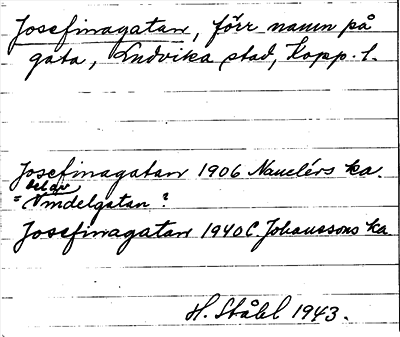 Josefinagatan, förr namn på
gata, Ludvika stad, Kopp. l.
Josefinagatan 1906 Nauclérs ka.
del av
= Vindelgatan?
Josefinagatan 1940 C. Johanssons ka
H. Ståhl 1943.